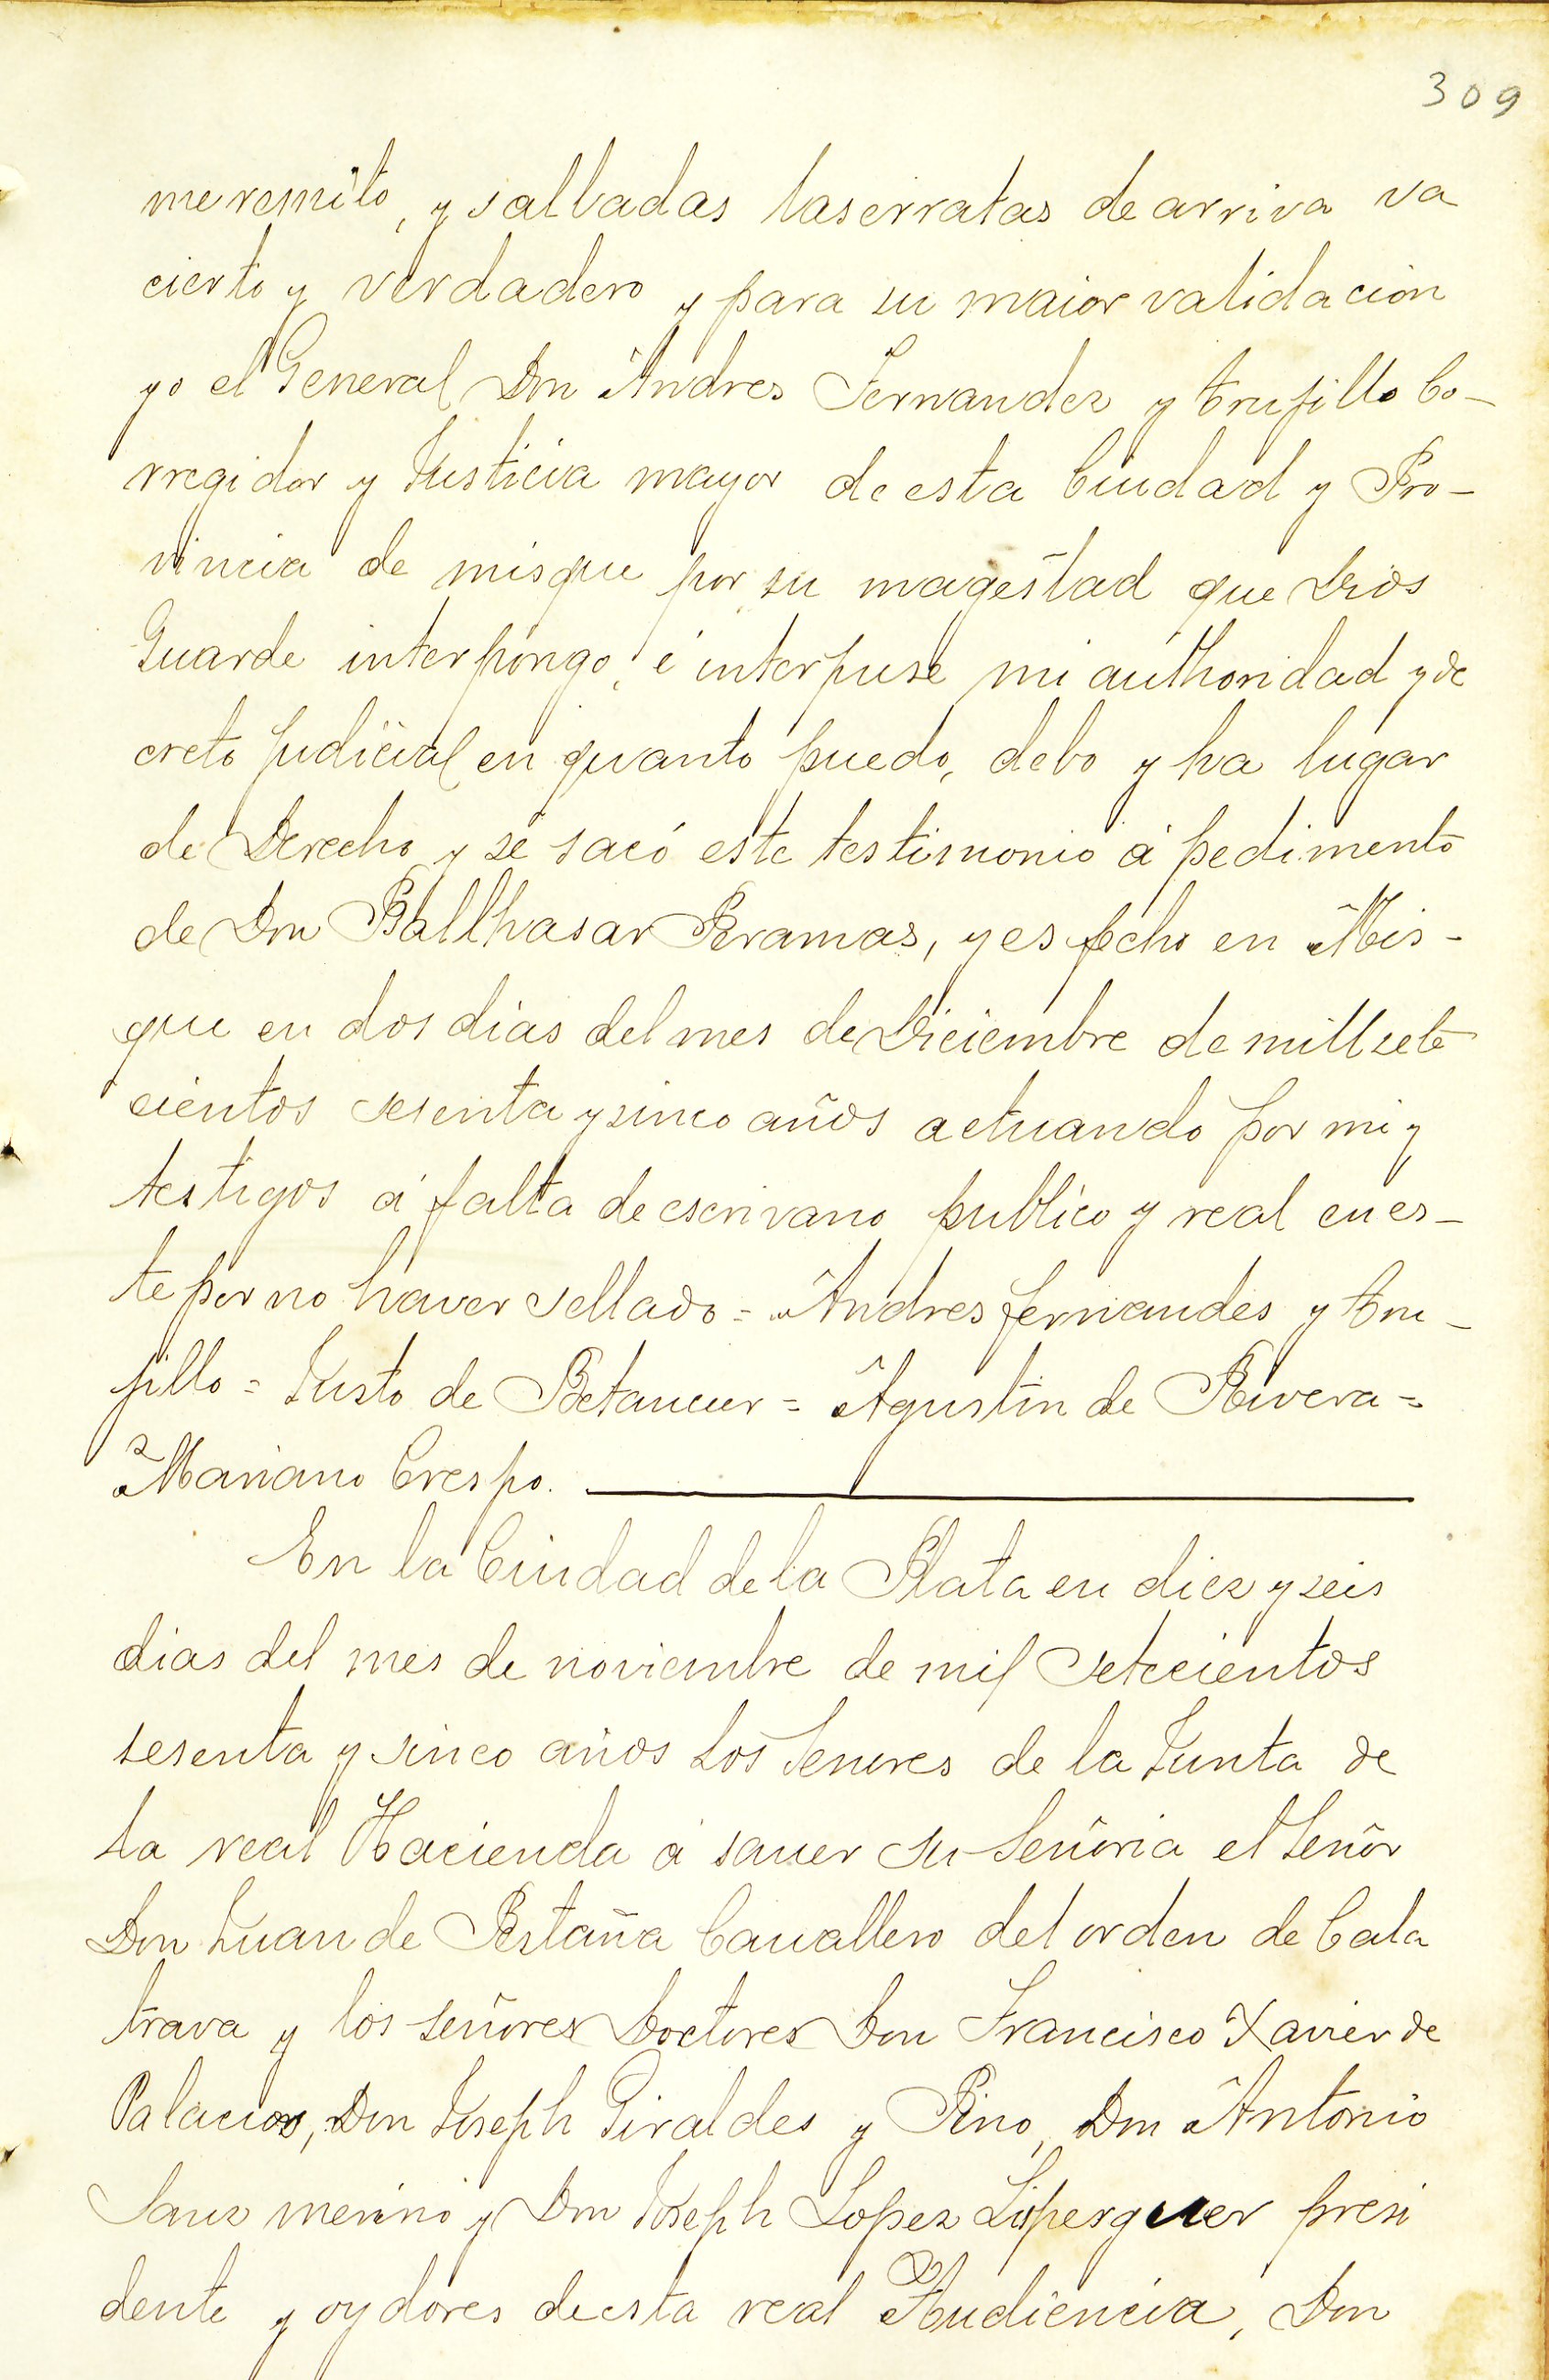 309
me remito, y salbadas las erratas de arriva va
cierto y verdadero y para su maior validacion
yo el General Don Andres Fernandez y Trujillo Co-
rregidor y Justicia mayor de esta Ciudad y Pro-
vincia de misque por su magestad que Dios
Guarde interpongo, é interpuse mi authoridad y de
creto judicial en quanto puedo, debo y ha lugar
de Derecho y se sacó este testimonio á pedimento
de Don Balthasar Peramas, y es fecho en Mis-
que en dos dias del mes de Diciembre de mill sete
cientos sesenta y sinco años actuando por mi y
testigos á falta de escrivano publico y real en es-
te por no haver sellado = Andres fernandes y Tru-
jillo = Justo de Betancur = Agustin de Rivera =
Mariano Crespo.
En la Ciudad de la Plata en diez y seis
dias del mes de noviembre de mil setecientos
sesenta y sinco años Los Senores de la Junta de
la real Hacienda á saver su Señoria el Señor
Don Juan de Pestaña Cavallero del orden de Cala
trava y los señores Doctores Don Francisco Xavier de
Palacios, Don Joseph Giraldes y Pino, Don Antonio
Sanz merino y Don Joseph Lopez Lisperguer presi
dente y oydores de esta real Audiencia, Don